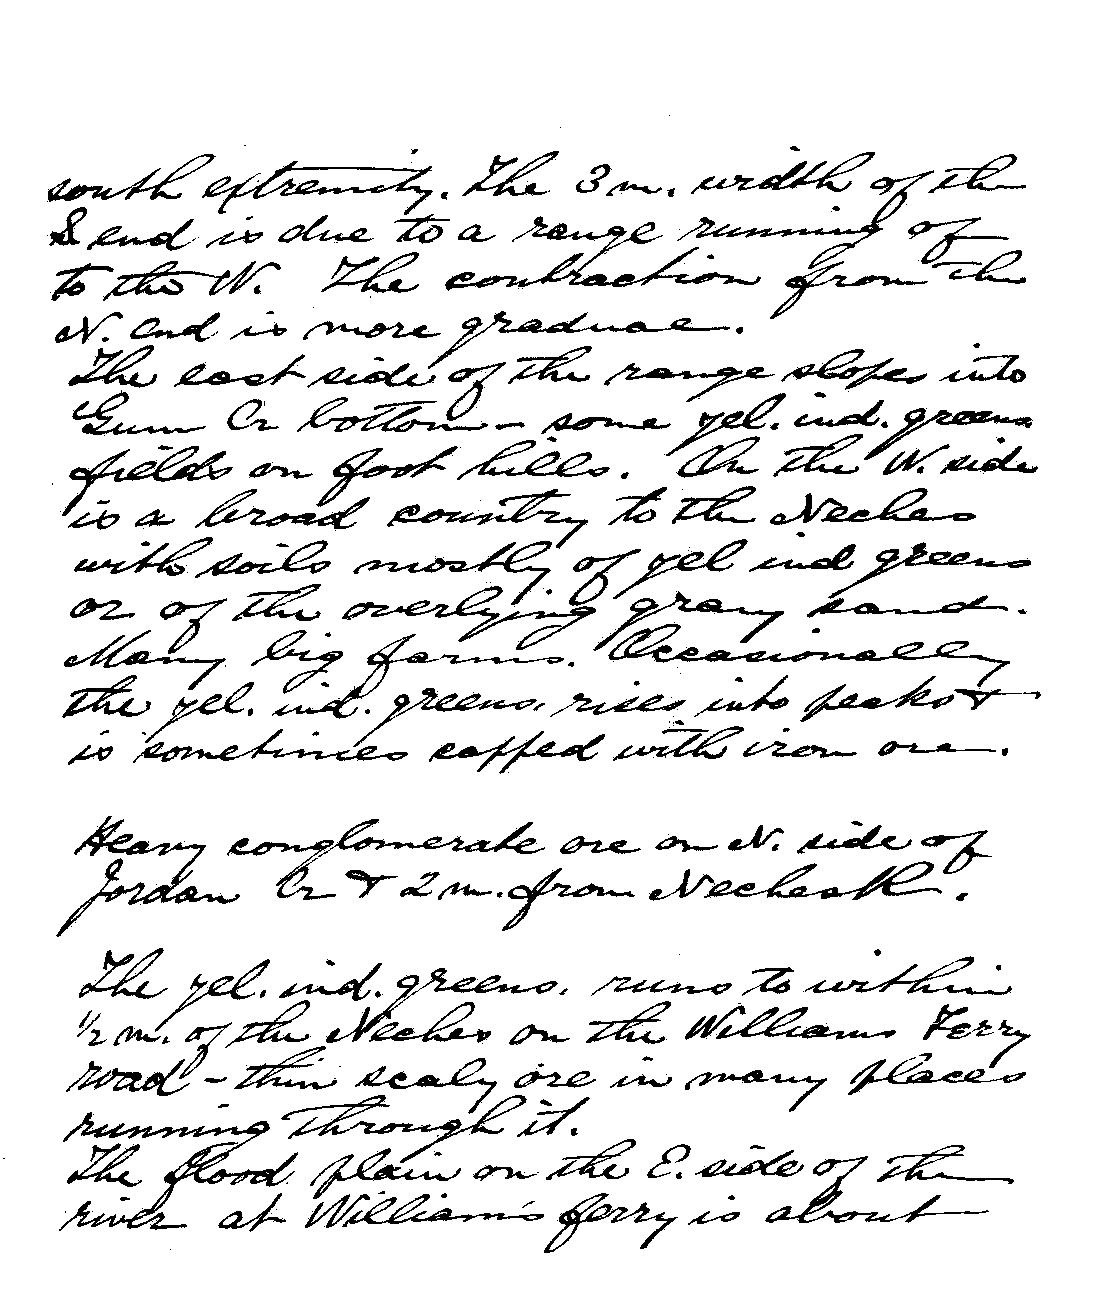 south extremity. The 3 m. width of the
S end is due to a range running of
to the W. The contraction from the
N. end is more gradual.
The east side of the range slopes into
Gum Cr bottom - some yel. ind. greens
fields on foot hills. On the W. side
is a broad country to the Neches
with soils mostly of yel ind greens
or of the overlying gray sand.
Many big farms. Occasionally
the yel. ind. greens. rises into peaks &
is sometimes capped with iron ore.
Heavy conglomerate ore on N. side of
Jordan Cr & 2 m. from Neches R.
The yel. ind. greens. runs to within
1/2 m. of the Neches on the Williams Ferry
road - thin scaly ore in many places
running through it.
The flood plain on the E. side of the
river at William's ferry is about